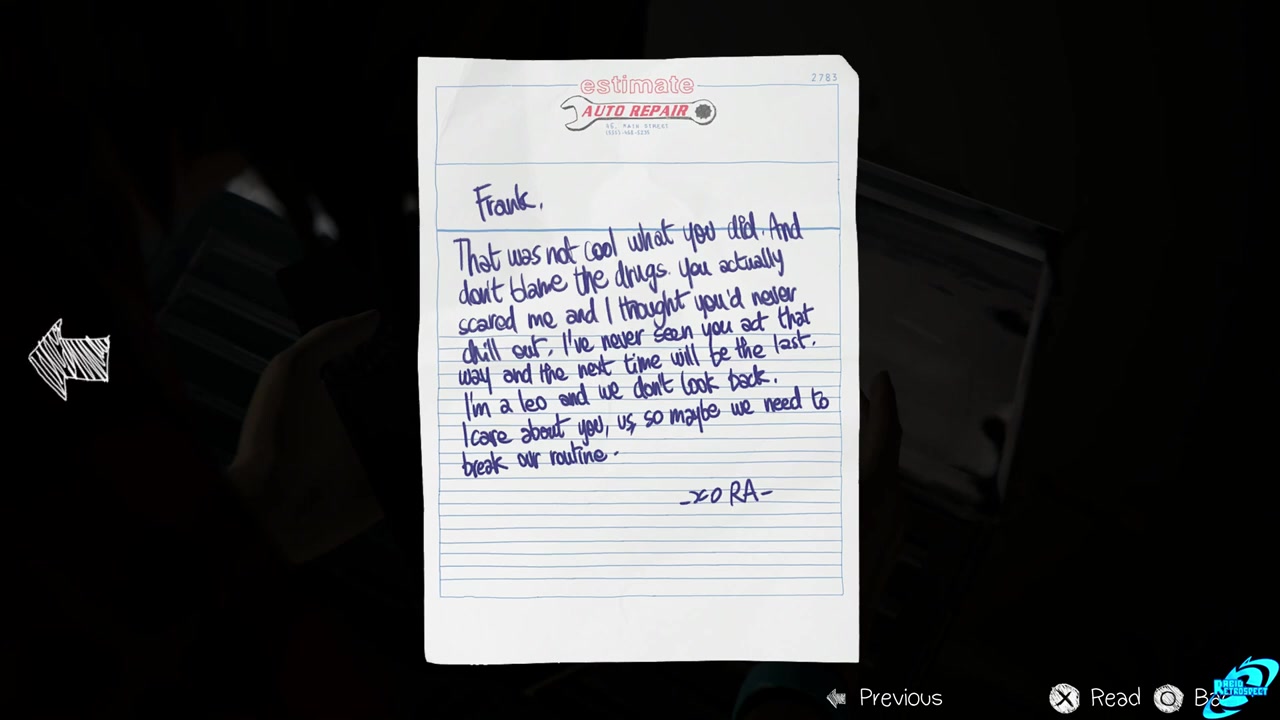 estimate
2783
AUTO REPAIR
Frank,
That was not cool what you did. And
don't blame the drugs. You actually
scared me and I thought you'd never
chill out. I've never seen you act that
way and the next time will be the last.
I'm a leo and we don't look back.
I care about you, us, so maybe we need to
break our routine.
-xo RA-
Previous
Read
RETROSPECT